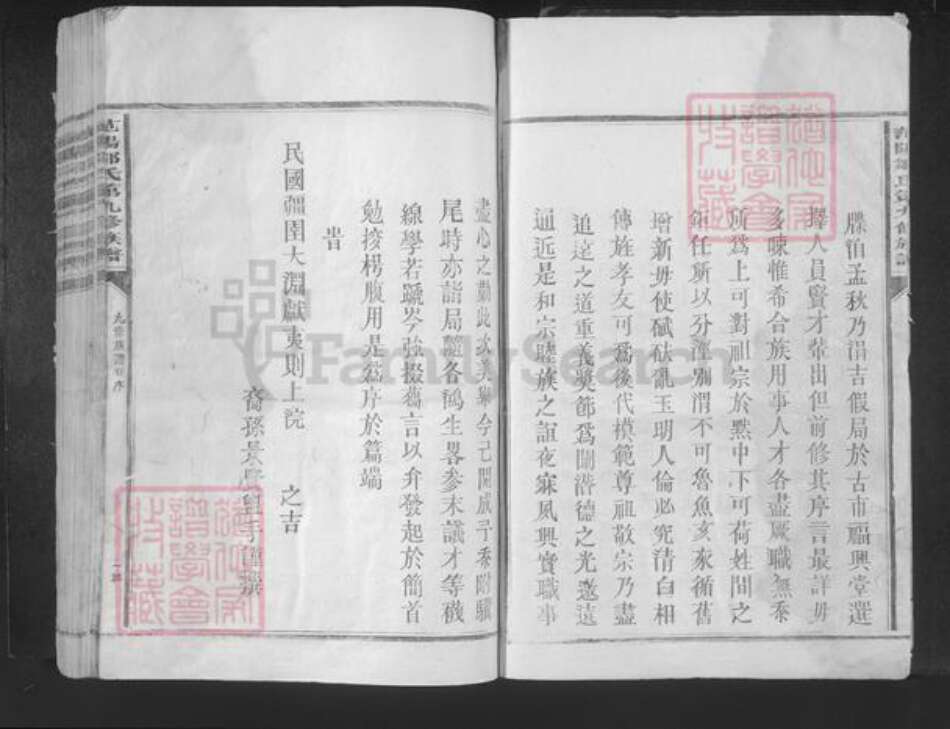 牒泊孟秋乃涓吉假局於古市福興堂選
擇人員賢才輩出但前修其序言最詳毋
多陳惟希合族用事人才各盡厥職無忝
所爲上可對祖宗於黙中下可荷姓間之
鉅任所以分涇別渭不可魯魚亥豕循舊
增新毋使碔砆亂玉明人倫必究清白相
傳旌孝友可爲後代模範尊祖敬宗乃盡
追逺之道重義奬節爲闡潛德之光邀遠
通近是和宗聴族之誼夜寐夙興實職事
盡心之勸此次美舉今已開成予忝附驥
尾時亦詣局隨各鴻生畧参末議才等襪
線學若蹏岑強掇舊言以弁發起於簡首
勉按枵腹用是爲序於篇端
旹
民國彊圉大淵獻夷則上浣 之吉
裔孫景 手謹撰
九修族譜 序
FamilySearch
譜學會
收藏
譜學會
收藏